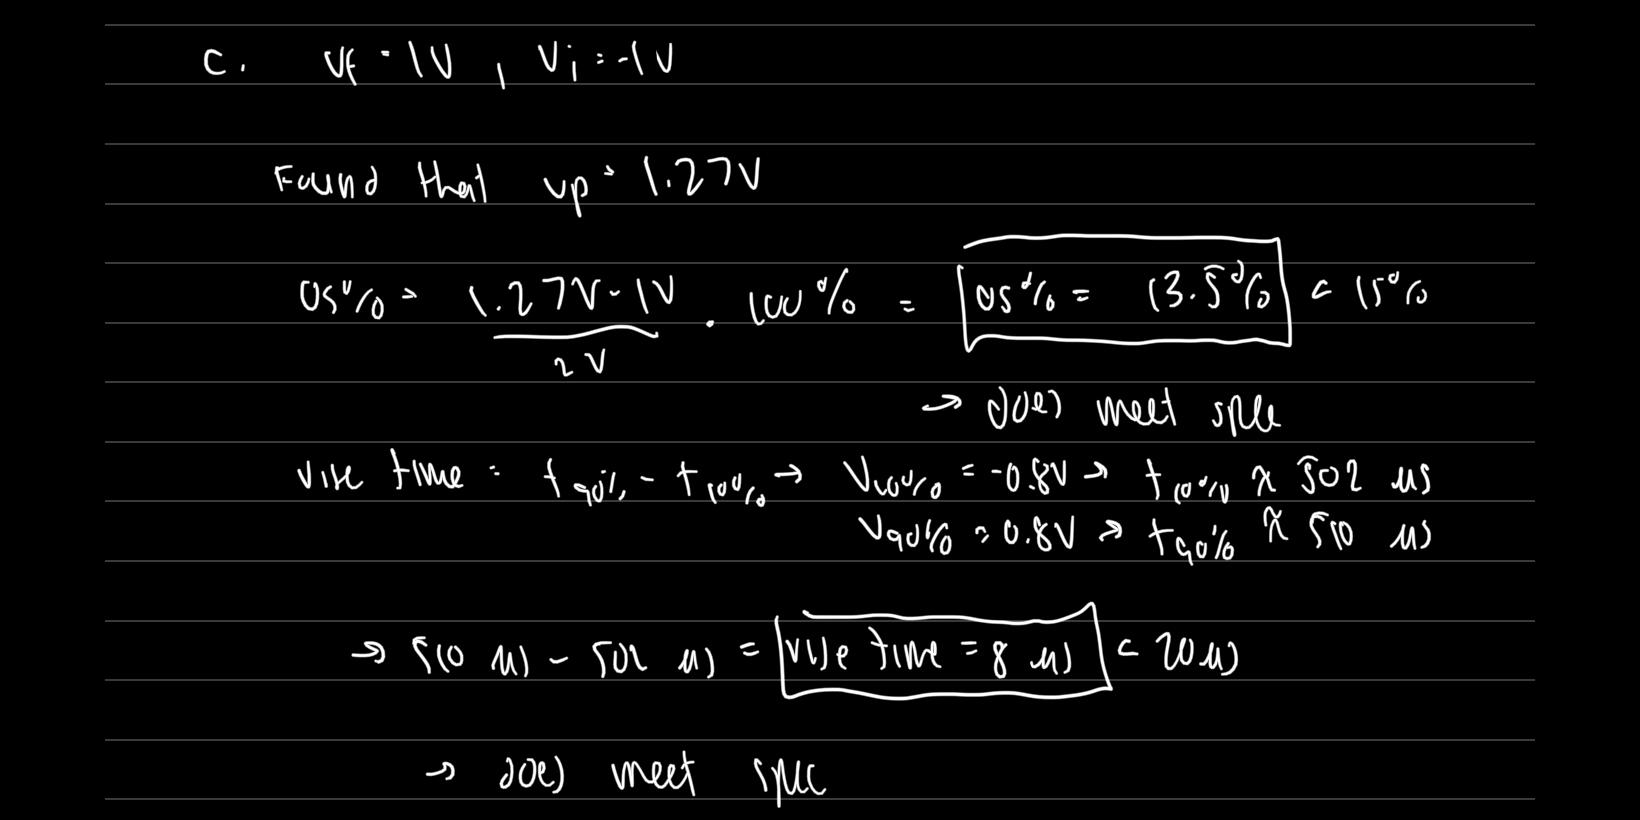 c. Vf = 1V, Vi = -1V
Found that vp = 1.27V
OS% = (1.27V - 1V)/2V · 100% = OS% = 13.5% < 15%
→ does meet spec
rise time = t90% - t10% → V10% = -0.8V → t10% ≈ 502 μs
V90% = 0.8V → t90% ≈ 510 μs
→ 510 μs - 502 μs = rise time = 8 μs < 20 μs
→ does meet spec